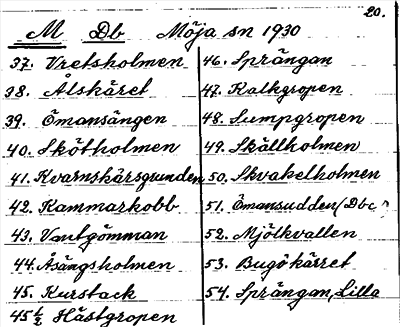 20.
M Db Möja sn 1930
37. Vretsholmen
38. Ålskäret
39. Ömansängen
40. Skötholmen
41. Kvarnskärsgrunden
42. Kammarkobb
43. Vantgömman
44. Åsängsholmen
45. Kurstack
45½ Hästgropen
46. Sprängan
47. Kalkgropen
48. Sumpgropen
49. Skällholmen
50. Skvakelholmen
51. Ömansudden (Dbc)
52. Mjölkvallen
53. Bugökärret
54. Sprängan, Lilla